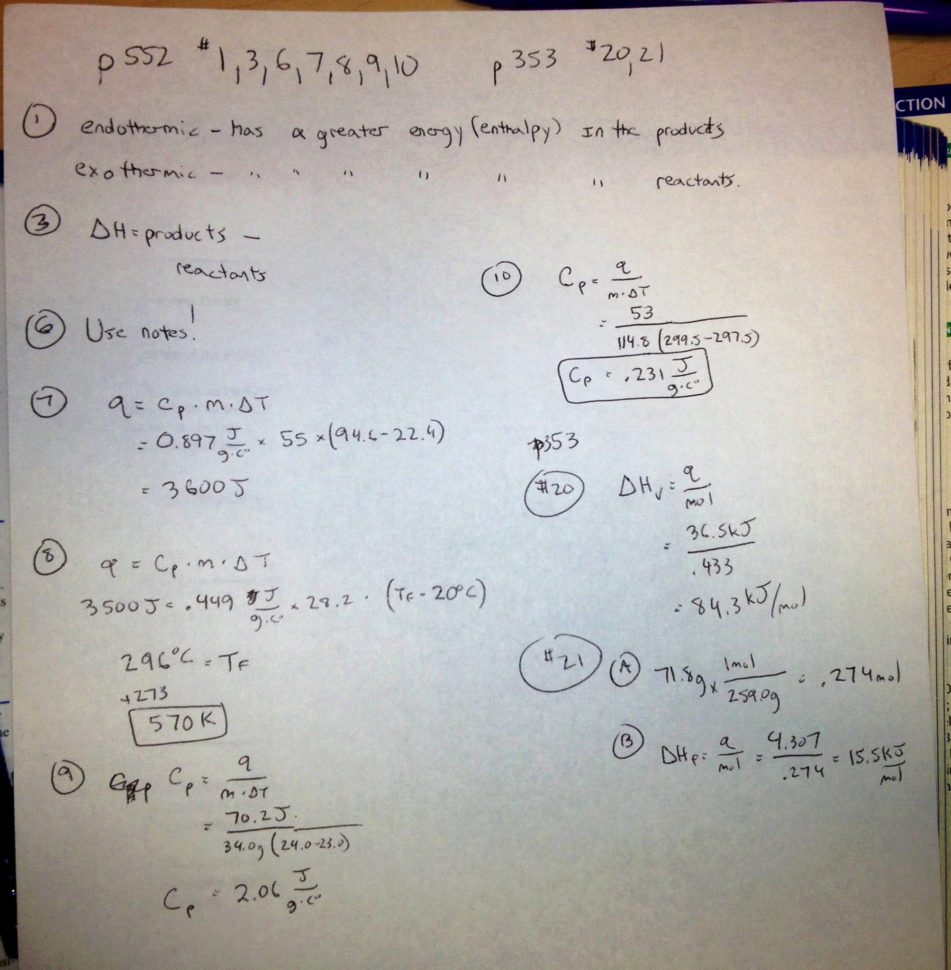 p552 #1,3,6,7,8,9,10 p353 #20,21
① endothermic - has a greater energy (enthalpy) in the products
exothermic - " " " " " " reactants.
③ ΔH = products -
reactants
⑥ Use notes!
⑦ q = Cp · m · ΔT
= 0.897 J/g·C° × 55 × (94.6 - 22.4)
= 3600 J
⑧ q = Cp · m · ΔT
3500 J = .449 J/g·C° × 28.2 · (TF - 20°C)
296°C = TF
+273
570 K
⑨ Cp = q/m·ΔT
= 70.2 J./34.0g (24.0-23.0)
Cp = 2.06 J/g·C°
⑩ Cp = q/m·ΔT
= 53/114.8 (299.5-297.5)
Cp = .231 J/g·C°
p353
#20 ΔHv = q/mol
= 36.5kJ/.433
= 84.3 kJ/mol
#21 Ⓐ 71.8g × 1mol/259.0g = .274mol
Ⓑ ΔHF = q/mol = 4.307/.274 = 15.5kJ/mol
CTION